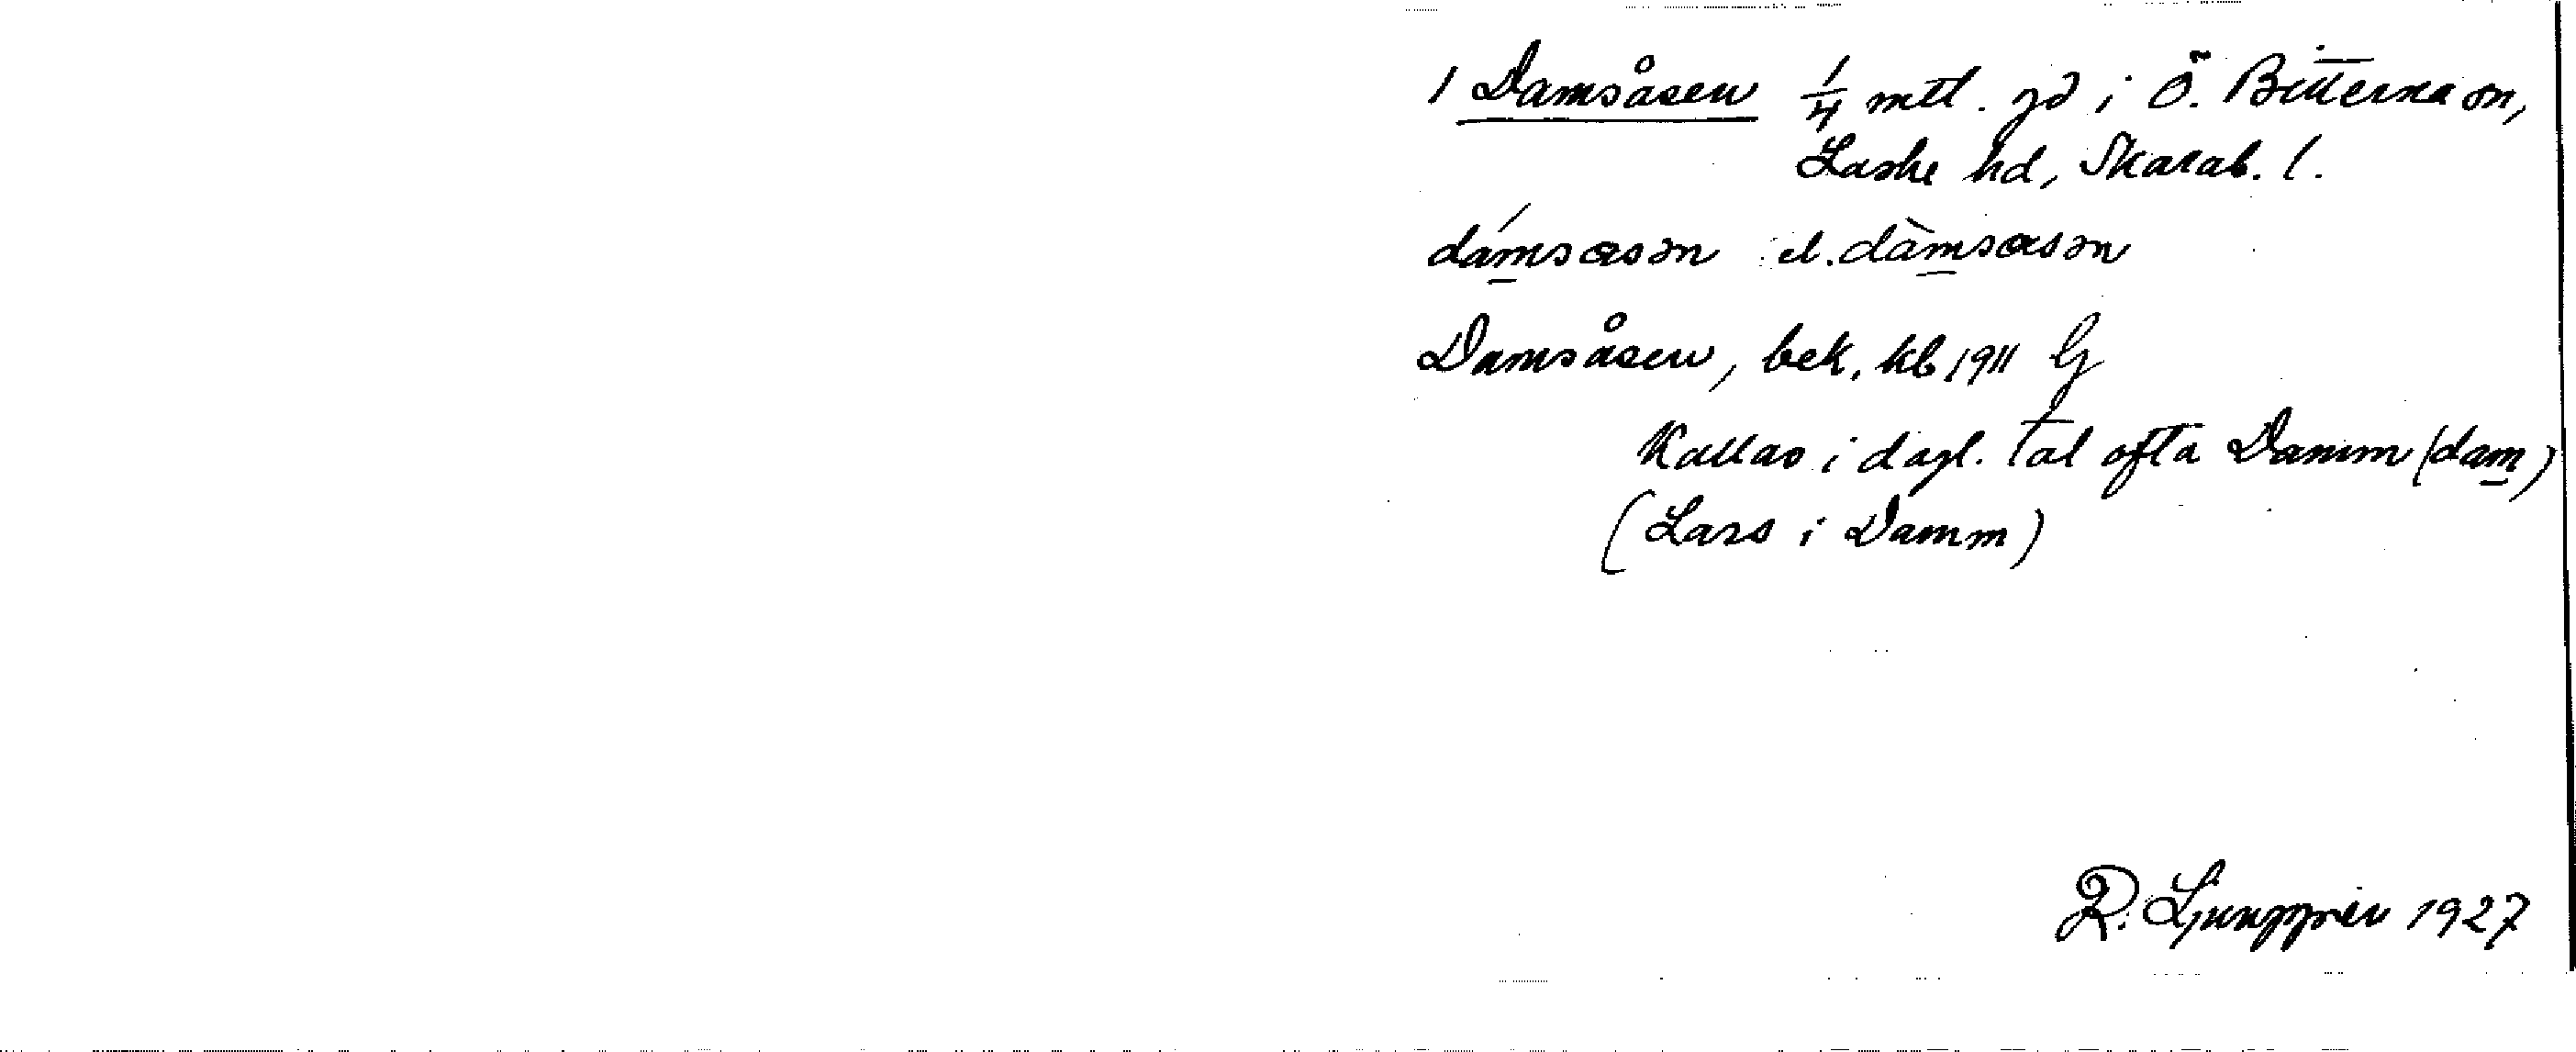 1 Damsåsen 1/4 mtl. gd i Ö. Bitterna sn,
Laske hd, Skarab. l.
dámsɑsən el. dàmsɑsən
Damsåsen, bek. kb 1911 Lj
Kallas i dagl. tal ofta Damm (dam)
(Lars i Damm)
R. Ljunggren 1927